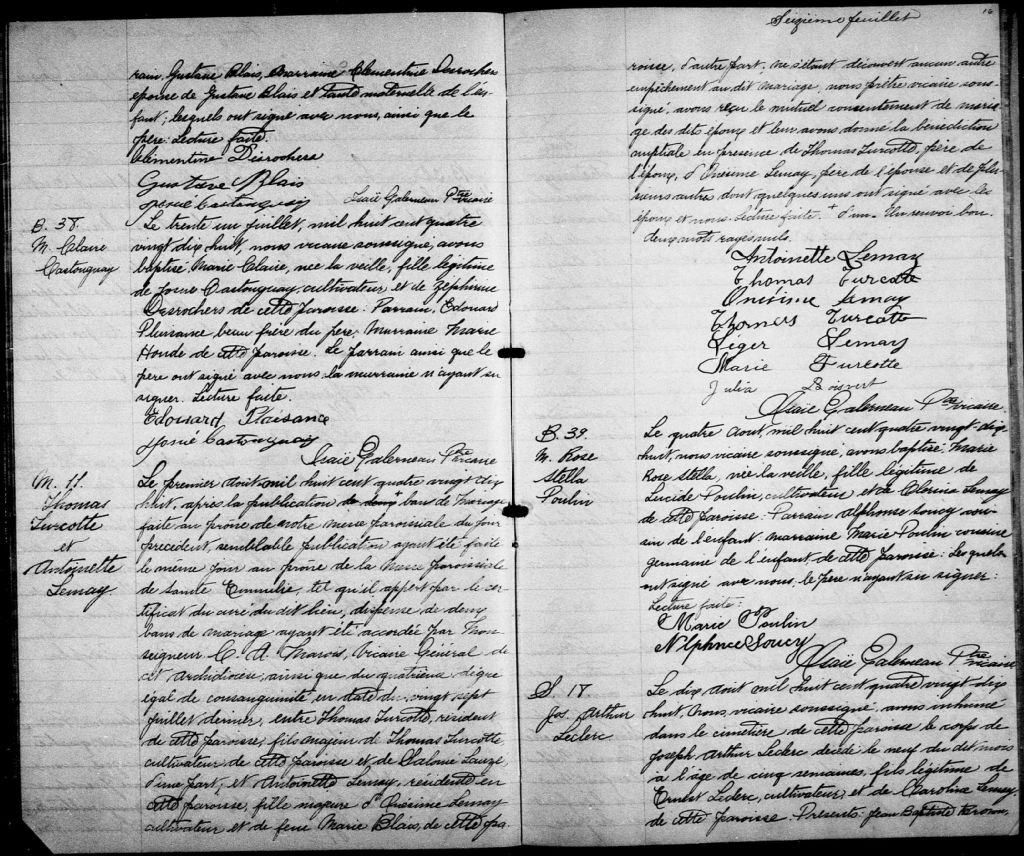 rain, Gustave Blais, marraine Clementine Desrochers
épouse de Gustave Blais et tante maternelle de l'en-
fant; lesquels ont signé avec nous, ainsi que le
père. Lecture faite.
Clémentine Désrochers
Gustave Blais
Josué Castonguay Isaïe Galerneau Ptre vicaire
B. 38.
M. Claire
Castonguay
Le trente un juillet, mil huit cent quatre
vingt dix huit, nous vicaire soussigné, avons
baptisé Marie Claire, née la veille, fille légitime
de Josué Castonguay, cultivateur, et de Zéphirine
Desrochers de cette paroisse. Parrain, Edouard
Plaisance, beau frère du père, Marraine Marie
Houde de cette paroisse. Le parrain ainsi que le
père ont signé avec nous la marraine n'ayant su
signer. Lecture faite.
Edouard Plaisance
Josué Castonguay
Isaïe Galerneau Ptre vicaire
M. 11.
Thomas
Turcotte
et
Antoinette
Lemay
Le premier août mil huit cent quatre vingt dix
huit, après la publication de bans de mariage
faite au prône de notre messe paroissiale du jour
precédent, semblable publication ayant été faite
le même jour au prône de la messe paroissiale
de Sainte Emmélie, tel qu'il appert par le cer-
tificat du curé du dit lieu, dispense de deux
bans de mariage ayant été accordée par Mon-
seigneur C. A. Marois, Vicaire Général de
cet Archidiocèse, ainsi que du quatrième degré
égal de consanguinité en date du vingt sept
juillet dernier, entre Thomas Turcotte, résident
de cette paroisse, fils majeur de Thomas Turcotte
cultivateur de cette paroisse et de Salomé Lauzé,
d'une part; et Antoinette Lemay, résidente en
cette paroisse, fille majeure d'Onésime Lemay
cultivateur et de feue Marie Blais, de cette pa-
Seizième feuillet
16
roisse, d'autre part, ne s'étant découvert aucun autre
empêchement au dit mariage, nous prêtre vicaire sous-
signé, avons reçu le mutuel consentement de maria-
ge des dits époux et leur avons donné la bénédiction
nuptiale en présence de Thomas Turcotte, père de
l'époux, d'Onésime Lemay, père de l'épouse et de plu-
sieurs autres dont quelques uns ont signé avec les
époux et nous. Lecture faite. Un renvoi bon.
deux mots rayés nuls.
Antoinette Lemay
Thomas Turcotte
Onésime Lemay
Thomas Turcotte
Léger Lemay
Marie Turcotte
Julia Boisvert
Isaïe Galerneau Ptre vicaire.
B. 39.
M. Rose
Stella
Poulin
Le quatre août, mil huit cent quatre vingt dix
huit, nous vicaire soussigné, avons baptisé Marie
Rose Stella, née la veille, fille légitime de
Lucide Poulin, cultivateur et de Clorina Lemay
de cette paroisse. Parrain Alphonse Soucy cou-
sin de l'enfant, marraine Marie Poulin cousine
germaine de l'enfant, de cette paroisse: Lesquels
ont signé avec nous, le père n'ayant su signer:
Lecture faite:
Marie Poulin
Alphnce Soucy
Isaïe Galerneau Ptre vicaire
S. 18.
Jos. Arthur
Leclerc
Le dix août mil huit cent quatre vingt dix
huit, Nous, vicaire soussigné, avons inhumé
dans le cimetière de cette paroisse le corps de
Joseph Arthur Leclerc décédé le neuf du dit mois
à l'âge de cinq semaines, fils légitime de
Ernest Leclerc, cultivateur, et de Caroline Lemay,
de cette paroisse. Présents: Jean Baptiste